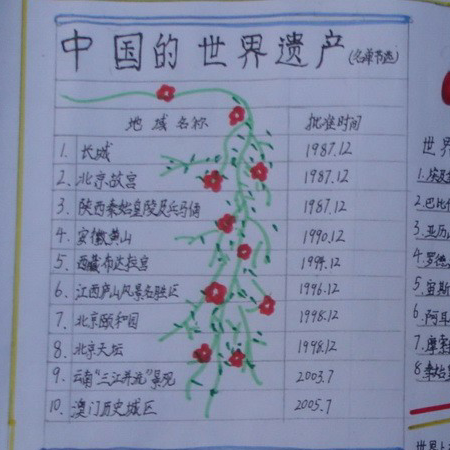 中国的世界遗产(名单节选)
地域名称 批准时间
1. 长城 1987.12
2. 北京故宫 1987.12
3. 陕西秦始皇陵及兵马俑 1987.12
4. 安徽黄山 1990.12
5. 西藏布达拉宫 1994.12
6. 江西庐山风景名胜区 1996.12
7. 北京颐和园 1998.12
8. 北京天坛 1998.12
9. 云南“三江并流”景观 2003.7
10. 澳门历史城区 2005.7
世界
1. 埃及
2. 巴比
3. 亚历山
4. 罗德
5. 宙斯
6. 阿耳
7. 摩索
8. 秦始皇
世界上